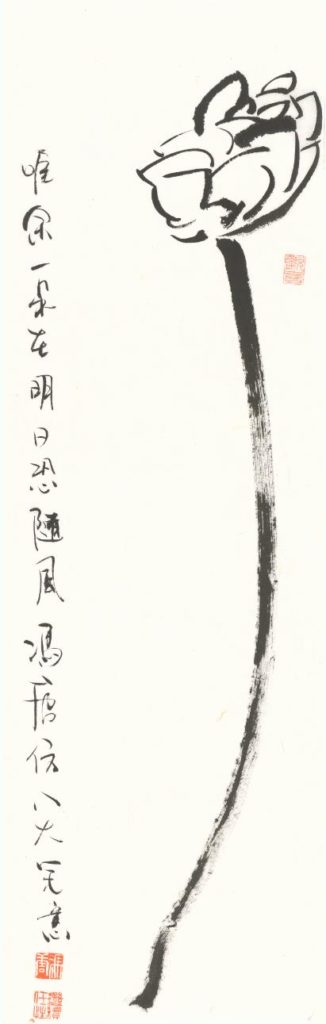 唯余一朵在明日恐隨風馮唐仿八大笔意